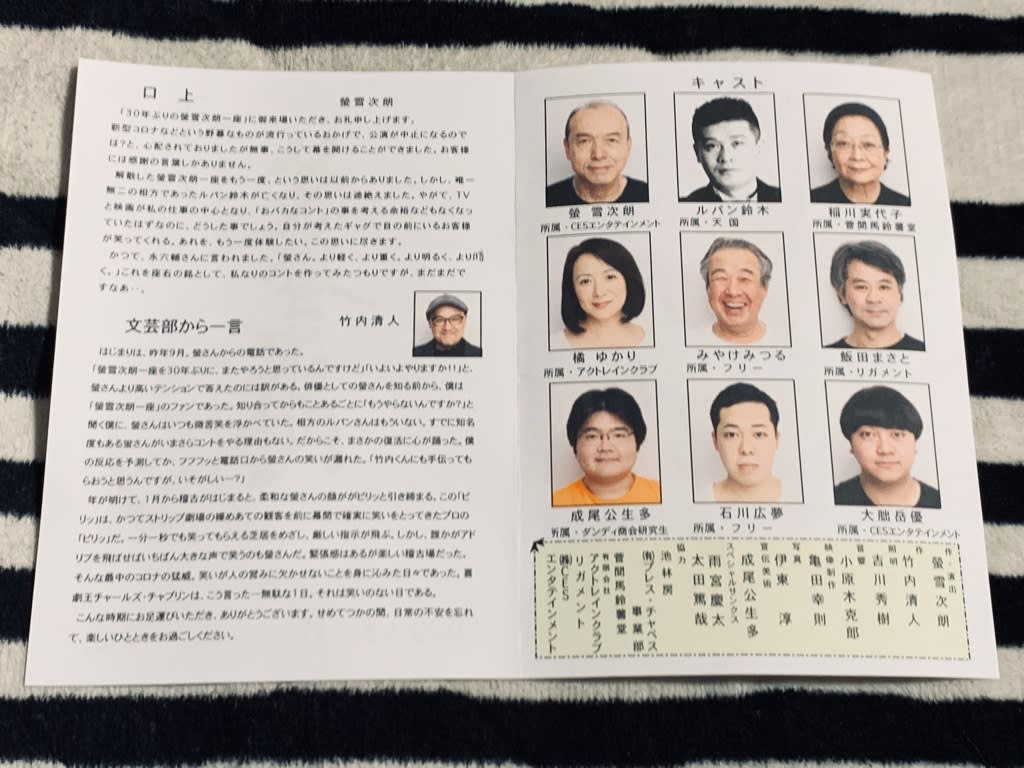 口上
螢雪次朗
「30年ぶりの螢雪次朗一座」に御来場いただき、お礼申し上げます。
新型コロナなどという野暮なものが流行っているおかげで、公演が中止になるので
は?と、心配されておりましたが無事、こうして幕を開けることができました。お客様
には感謝の言葉しかありません。
解散した螢雪次朗一座をもう一度、という思いは以前からありました。しかし、唯一
無二の相方であったルパン鈴木が亡くなり、その思いは途絶えました。やがて、TV
と映画が私の仕事の中心となり、「おバカなコント」の事を考える余裕などもなくなっ
ていたはずなのに、どうした事でしょう。自分が考えたギャグで目の前にいるお客様
が笑ってくれる。あれを、もう一度体験したい。この思いに尽きます。
かつて、永六輔さんに言われました。「螢さん。より軽く、より重く。より明るく、より
く。」これを座右の銘として、私なりのコントを作ってみたつもりですが、まだまだで
すなぁ‥。
文芸部から一言
竹内清人
はじまりは、昨年9月。螢さんからの電話であった。
「螢雪次朗一座を30年ぶりに、またやろうと思っているんですけど」「いよいよやりますか!!」と、
螢さんより高いテンションで答えたのには訳がある。俳優としての螢さんを知る前から、僕は
「螢雪次朗一座」のファンであった。知り合ってからもことあるごとに「もうやらないんですか?」と
聞く僕に、螢さんはいつも微苦笑を浮かべていた。相方のルパンさんはもういない。すでに知名
度もある螢さんがいまさらコントをやる理由もない。だからこそ、まさかの復活に心が踊った。僕
の反応を予測してか、フフフッと電話口から螢さんの笑いが漏れた。「竹内くんにも手伝っても
らおうと思うんですが、いそがしいー?」
年が明けて、1月から稽古がはじまると、柔和な螢さんの顔がピリッと引き締まる。この「ピ
リッ」は、かつてストリップ劇場の纏めあての観客を前に幕間で確実に笑いをとってきたプロの
「ピリッ」だ。一分一秒でも笑ってもらえる芝居をめざし、厳しい指示が飛ぶ。しかし、誰かがアド
リブを飛ばせばいちばん大きな声で笑うのも螢さんだ。緊張感はあるが楽しい稽古場だった。
そんな最中のコロナの猛威。笑いが人の営みに欠かせないことを身に沁みた日々であった。喜
劇王チャールズ・チャプリンは、こう言った―無駄な1日。それは笑いのない日である。
こんな時期にお足運びいただき、ありがとうございます。せめてつかの間、日常の不安を忘れ
て、楽しいひとときをお過ごしください。
キャスト
螢 雪次朗
所属・CESエンタテインメント
ルパン鈴木
所属・天国
稲川実代子
所属・菅間馬鈴薯堂
橘 ゆかり
所属・アクトレインクラブ
みやけみつる
所属・フリー
飯田まさと
所属・リガメント
成尾公生多
所属・ダンディ商会研究生
石川広夢
所属・フリー
大朏岳優
所属・CESエンタテインメント
作・演出
螢雪次朗
作
竹内清人
照明
吉川秀樹
音響
小原木克郎
映像制作
亀田幸則
写真
伊東 淳
宣伝美術
成尾公生多
スペシャルサンクス
雨宮慶太
太田篤哉
協力
池林房
(有)プレス・チャペス
事業部
菅間馬鈴薯堂
有限会社
アクトレインクラブ
リガメント
(株)CES
エンタテインメント